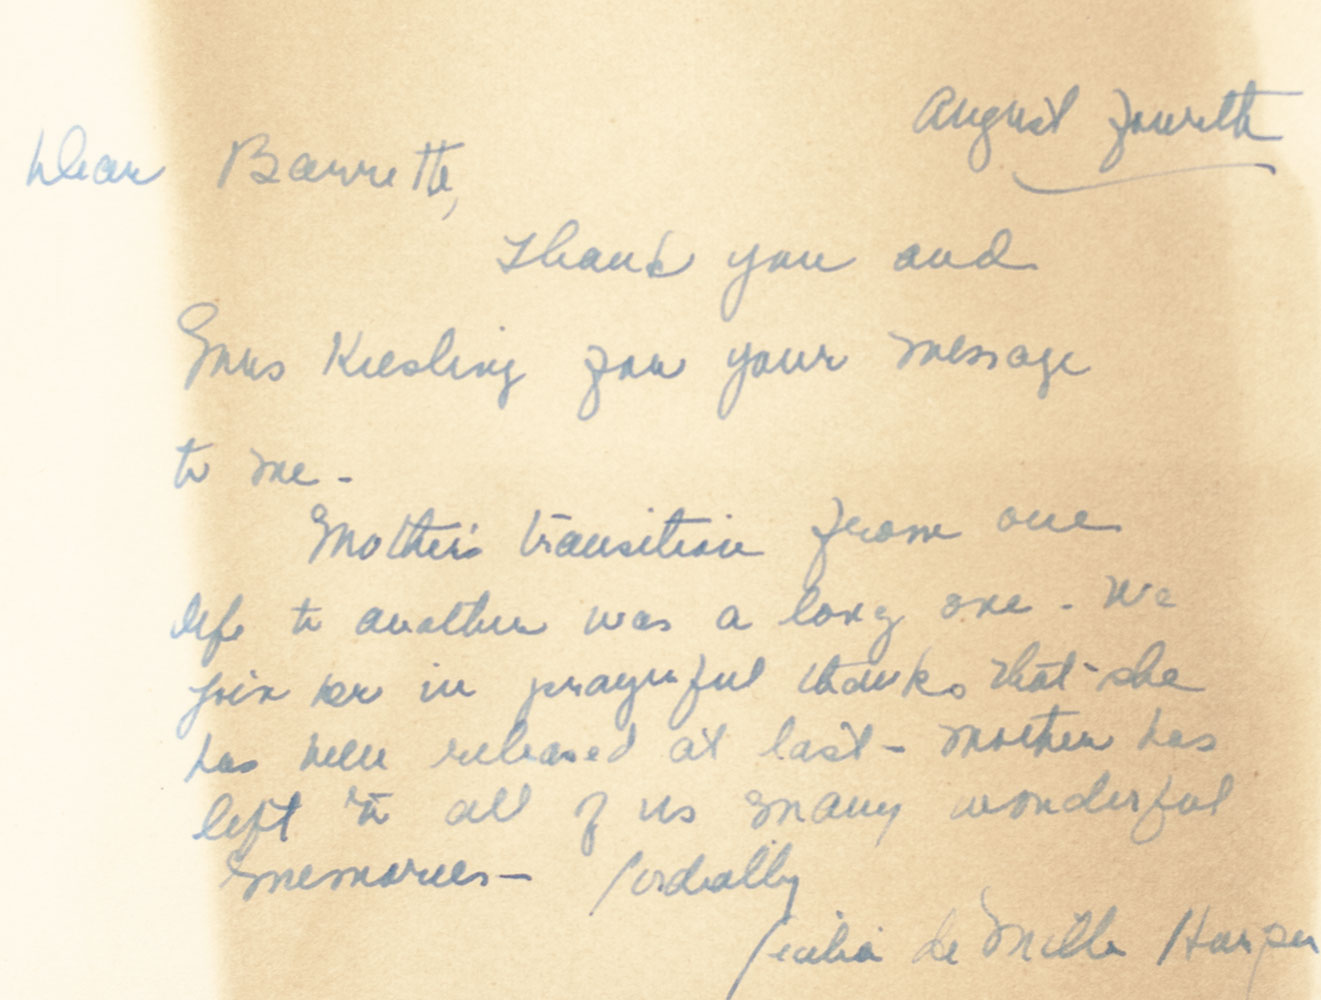 August fourth
Dear Barrett,
Thank you and
Mrs Kiesling for your message
to me -
Mother's transition from one
life to another was a long one - We
join her in prayerful thanks that she
has been released at last - Mother has
left to all of us many wonderful
memories - Cordially
Cecilia de Mille Harper